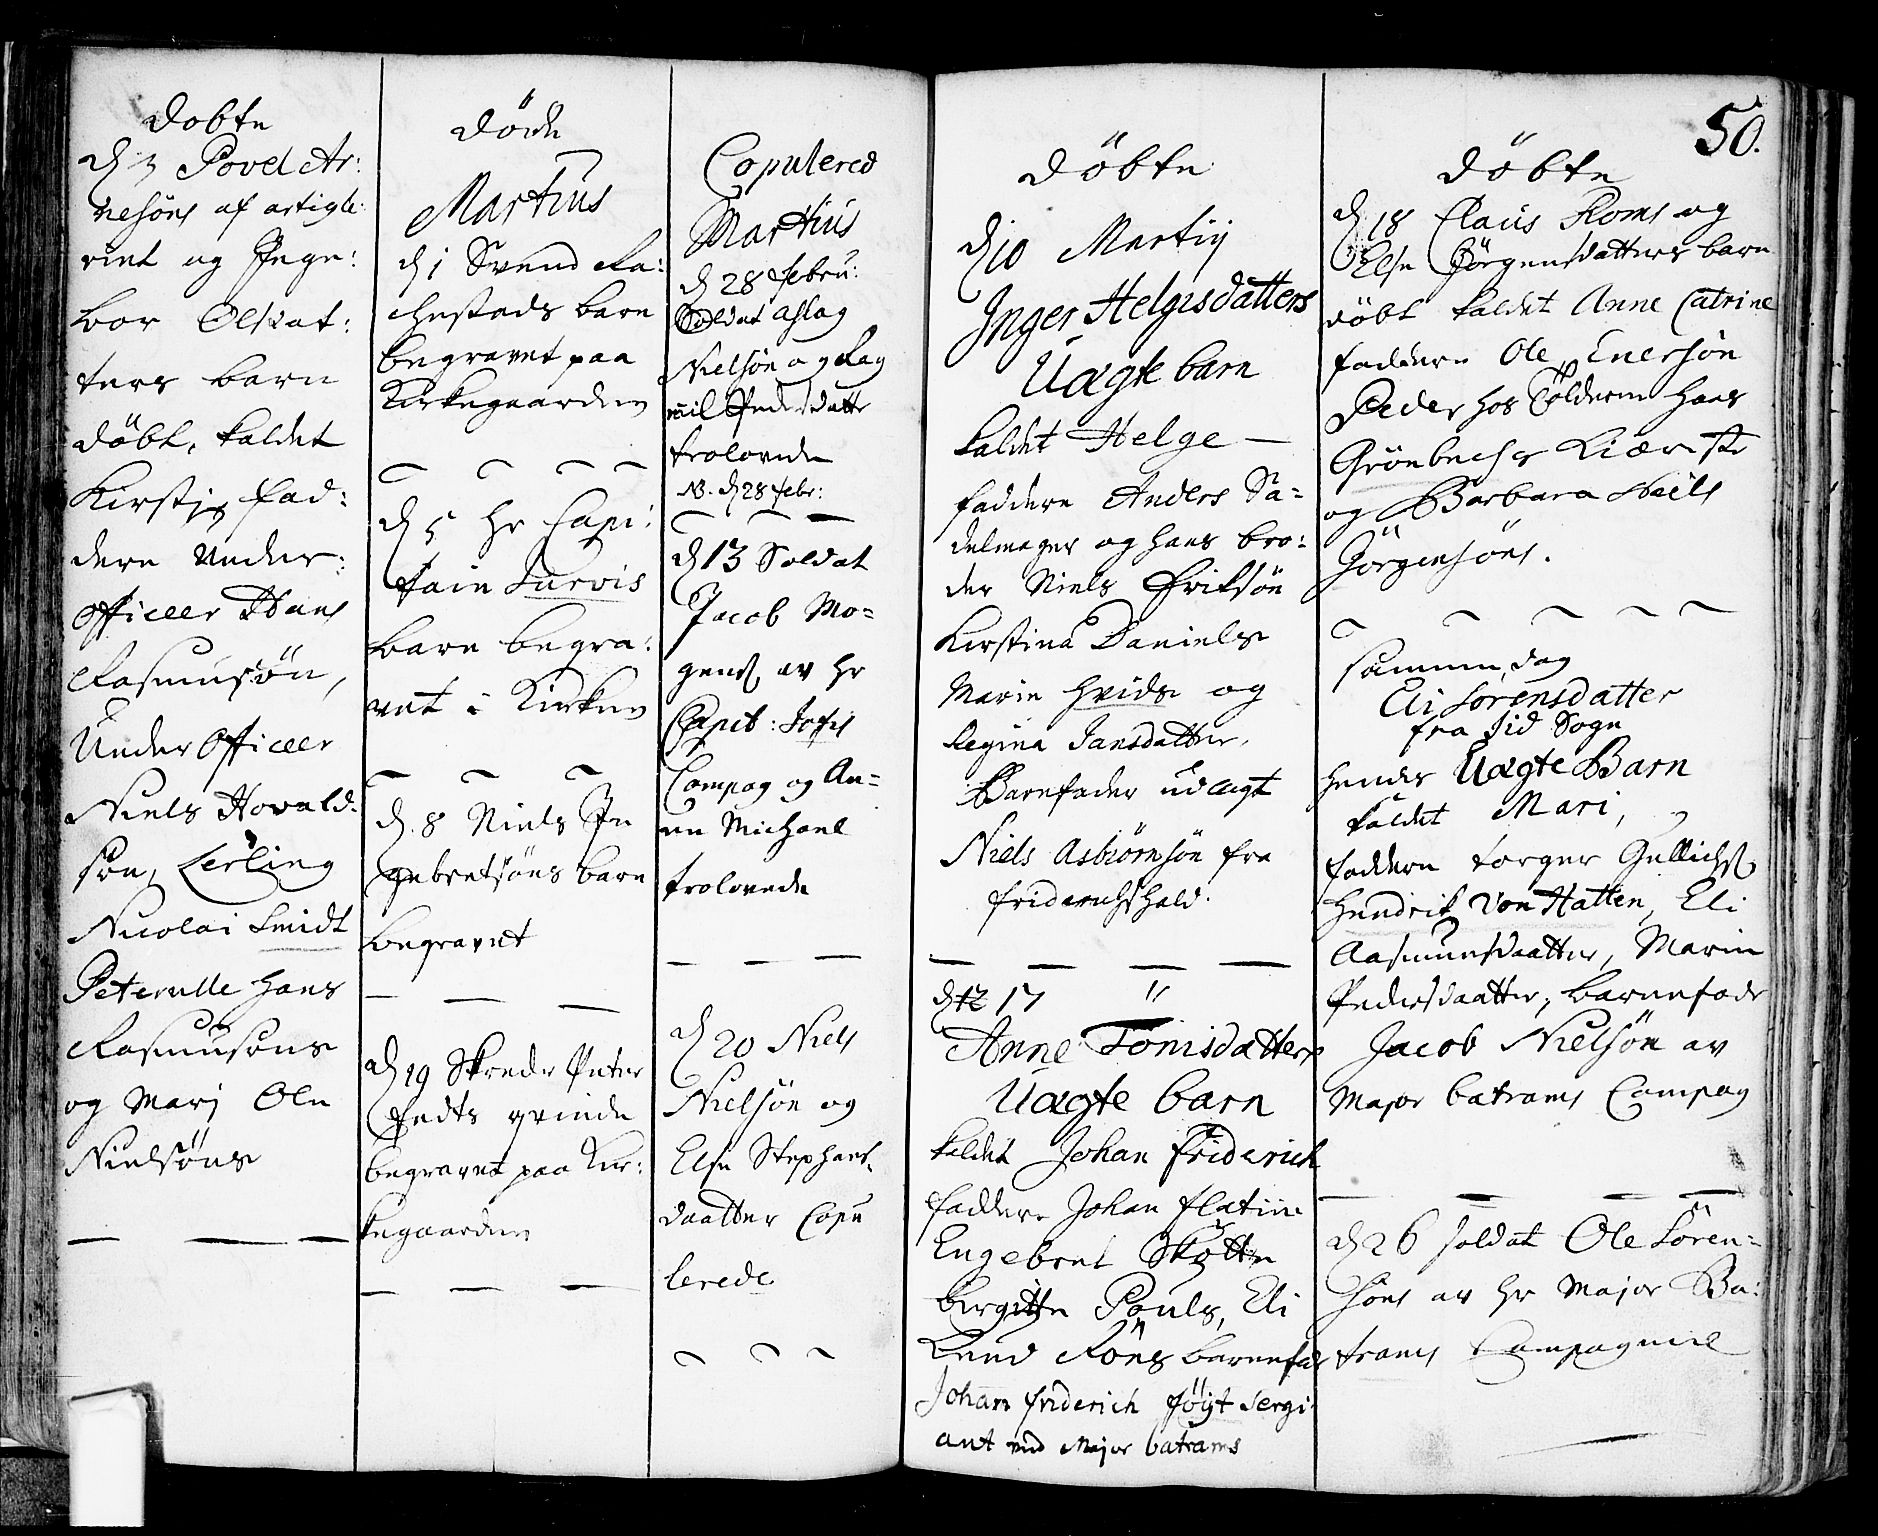 50.
Döbte
D 3 Povel Ar:
nesöns af artigle:
riet og Inge:
bor Olsdat:
ters barn
döbt, kaldet
Kirstj, fad:
dere Under:
Officeer Hans
Rasmusön,
Under Officeer
Niels Hovald:
sön, Lerling
Nicolai Smidt
Peternille Hans
Rasmusöns
og Marj Ole
Nielsöns
Döde
Martius
D 1 Svend Ra:
chestads barn
begravet paa
Kirkegaarden
D 5 Hr Capi:
tain Jurvis
barn begra:
vet i Kirken
D. 8 Niels In
gebretsöns barn
begravet
D 19 Skredr Peter
Fedts qvinde
begravet paa Kir:
kegaarden
Copulered
Martius
D 28 Febru:
Soldat Aslag
Nielsön og Rag
nil Pedersdatter
trolovede
NB. D 28 Febr:
D 13 Soldat
Jacob Mo=
gens av Hr
Capit: Tofts
Compag og An=
ne Michael
trolovede
D 20 Niels
Nielsön og
Else Stephans-
daatter Copu
lerede
Döbte
D 10 Martij
Inger Helgisdatters
Uægte barn
kaldet Helge
faddere Anders Sa=
delmager og hans bro:
der Niels Eriksön
Kirstina Daniels
Marie Hvids og
Regina Jansdatter.
Barnefader udlagt
Niels Asbiörnsön fra
Friderichshald.
D 12 17 "
Anne Tönisdatters
Uægte barn
kaldet Johan Friderich
faddere Johan Flatiin
Engebret Skötte
Birgitte Pouls, Eli
Knud Röns barnefadr
Johan Friderich Föyt Sergi
ant ved Major batrams
Döbte
D 18 Claus Roms og
Else Jörgensdatters barn
döbt kaldet Anne Catrine
faddere Ole Enersön
Peder hos Tolderen Hans
Grönbechs Kiæreste
og Barbara Niels
Jörgensöns.
samme dag
Eli Sörensdatter
fra Jid Sogn
hendes Uægte Barn
kaldet Mari,
faddere Torger Gullichs
Hendrik Von Hatten, Eli
Aasmunsdaatter, Marin
Pedersdaatter, barnefadr
Jacob Nielsön av
Major batrams Compag
D 26 soldat Ole Sören=
söns av Hr Major Ba:
trams Compagnie